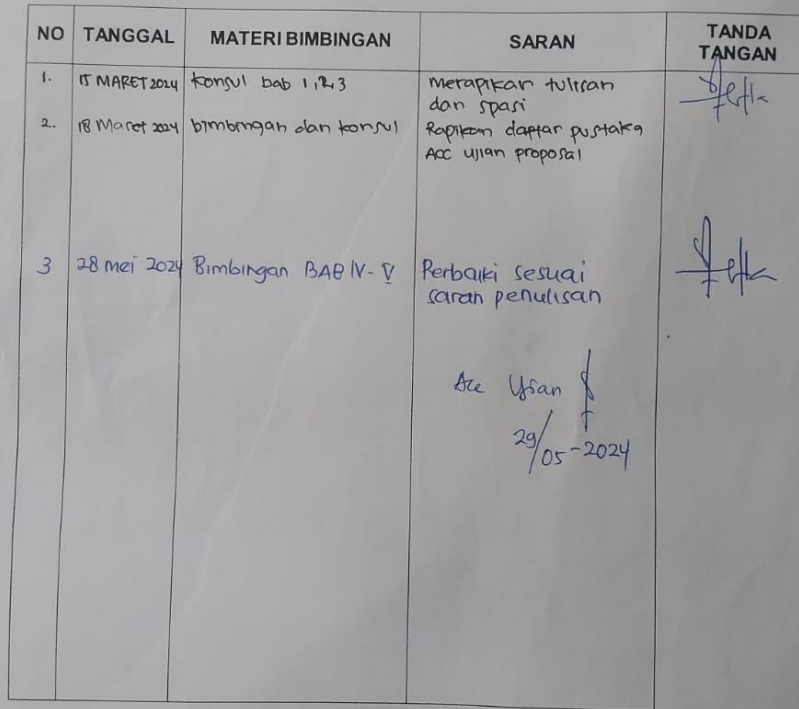 NO TANGGAL MATERI BIMBINGAN SARAN TANDA TANGAN
1. 15 MARET 2024 konsul bab 1,2,3 Merapikan tulisan
dan spasi
2. 18 Maret 2024 bimbingan dan konsul Rapikan daptar pustaka
Acc ujian proposal
3 28 mei 2024 Bimbingan BAB IV - V Perbaiki sesuai
saran penulisan
Acc Ujian
29/05-2024